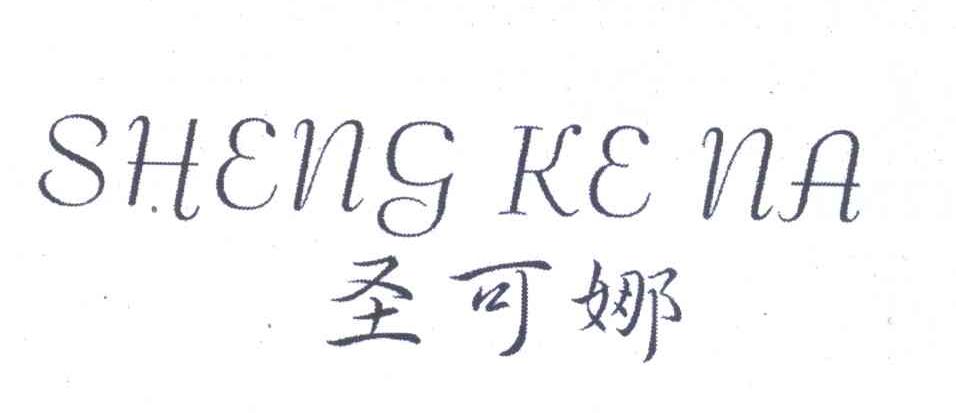 SHENG KE NA
圣可娜